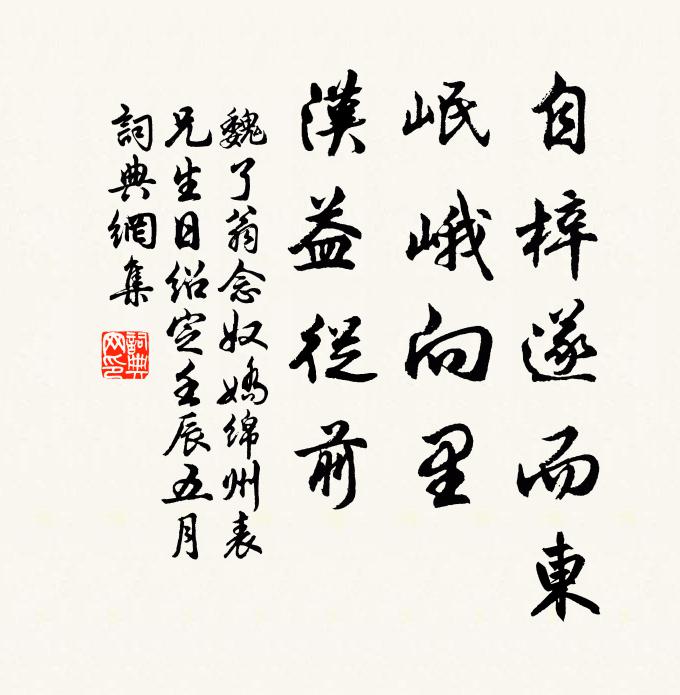 自梓遂而東
岷峨向里
漢益從前
魏了翁念奴嬌綿州表
兄生日紹定壬辰五月
詞典網集
詞典網印